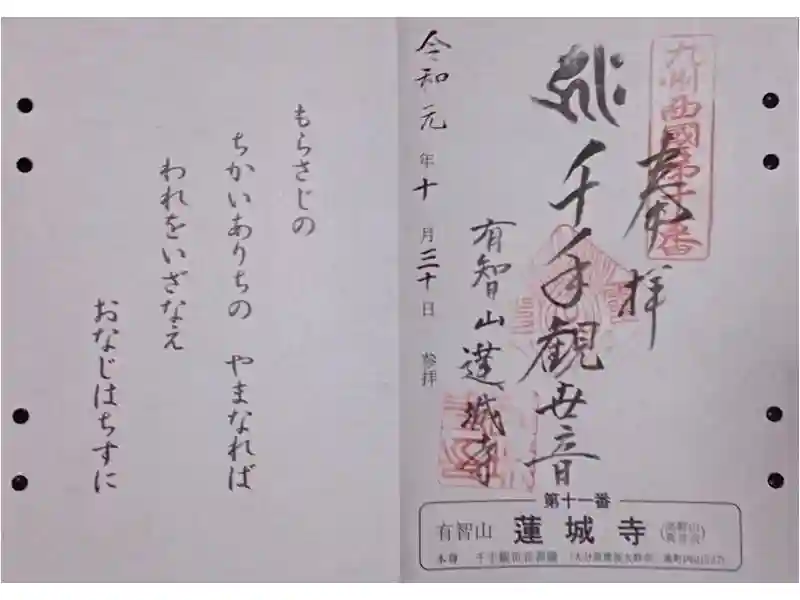 九州西國第十一番
奉拝
千手観世音
有智山蓮城寺
令和元年十月三十日 参拝
第十一番
有智山 蓮城寺
本尊 千手観世音菩薩
もらさじの
ちかいありちの やまなれば
われをいざなえ
おなじはちすに